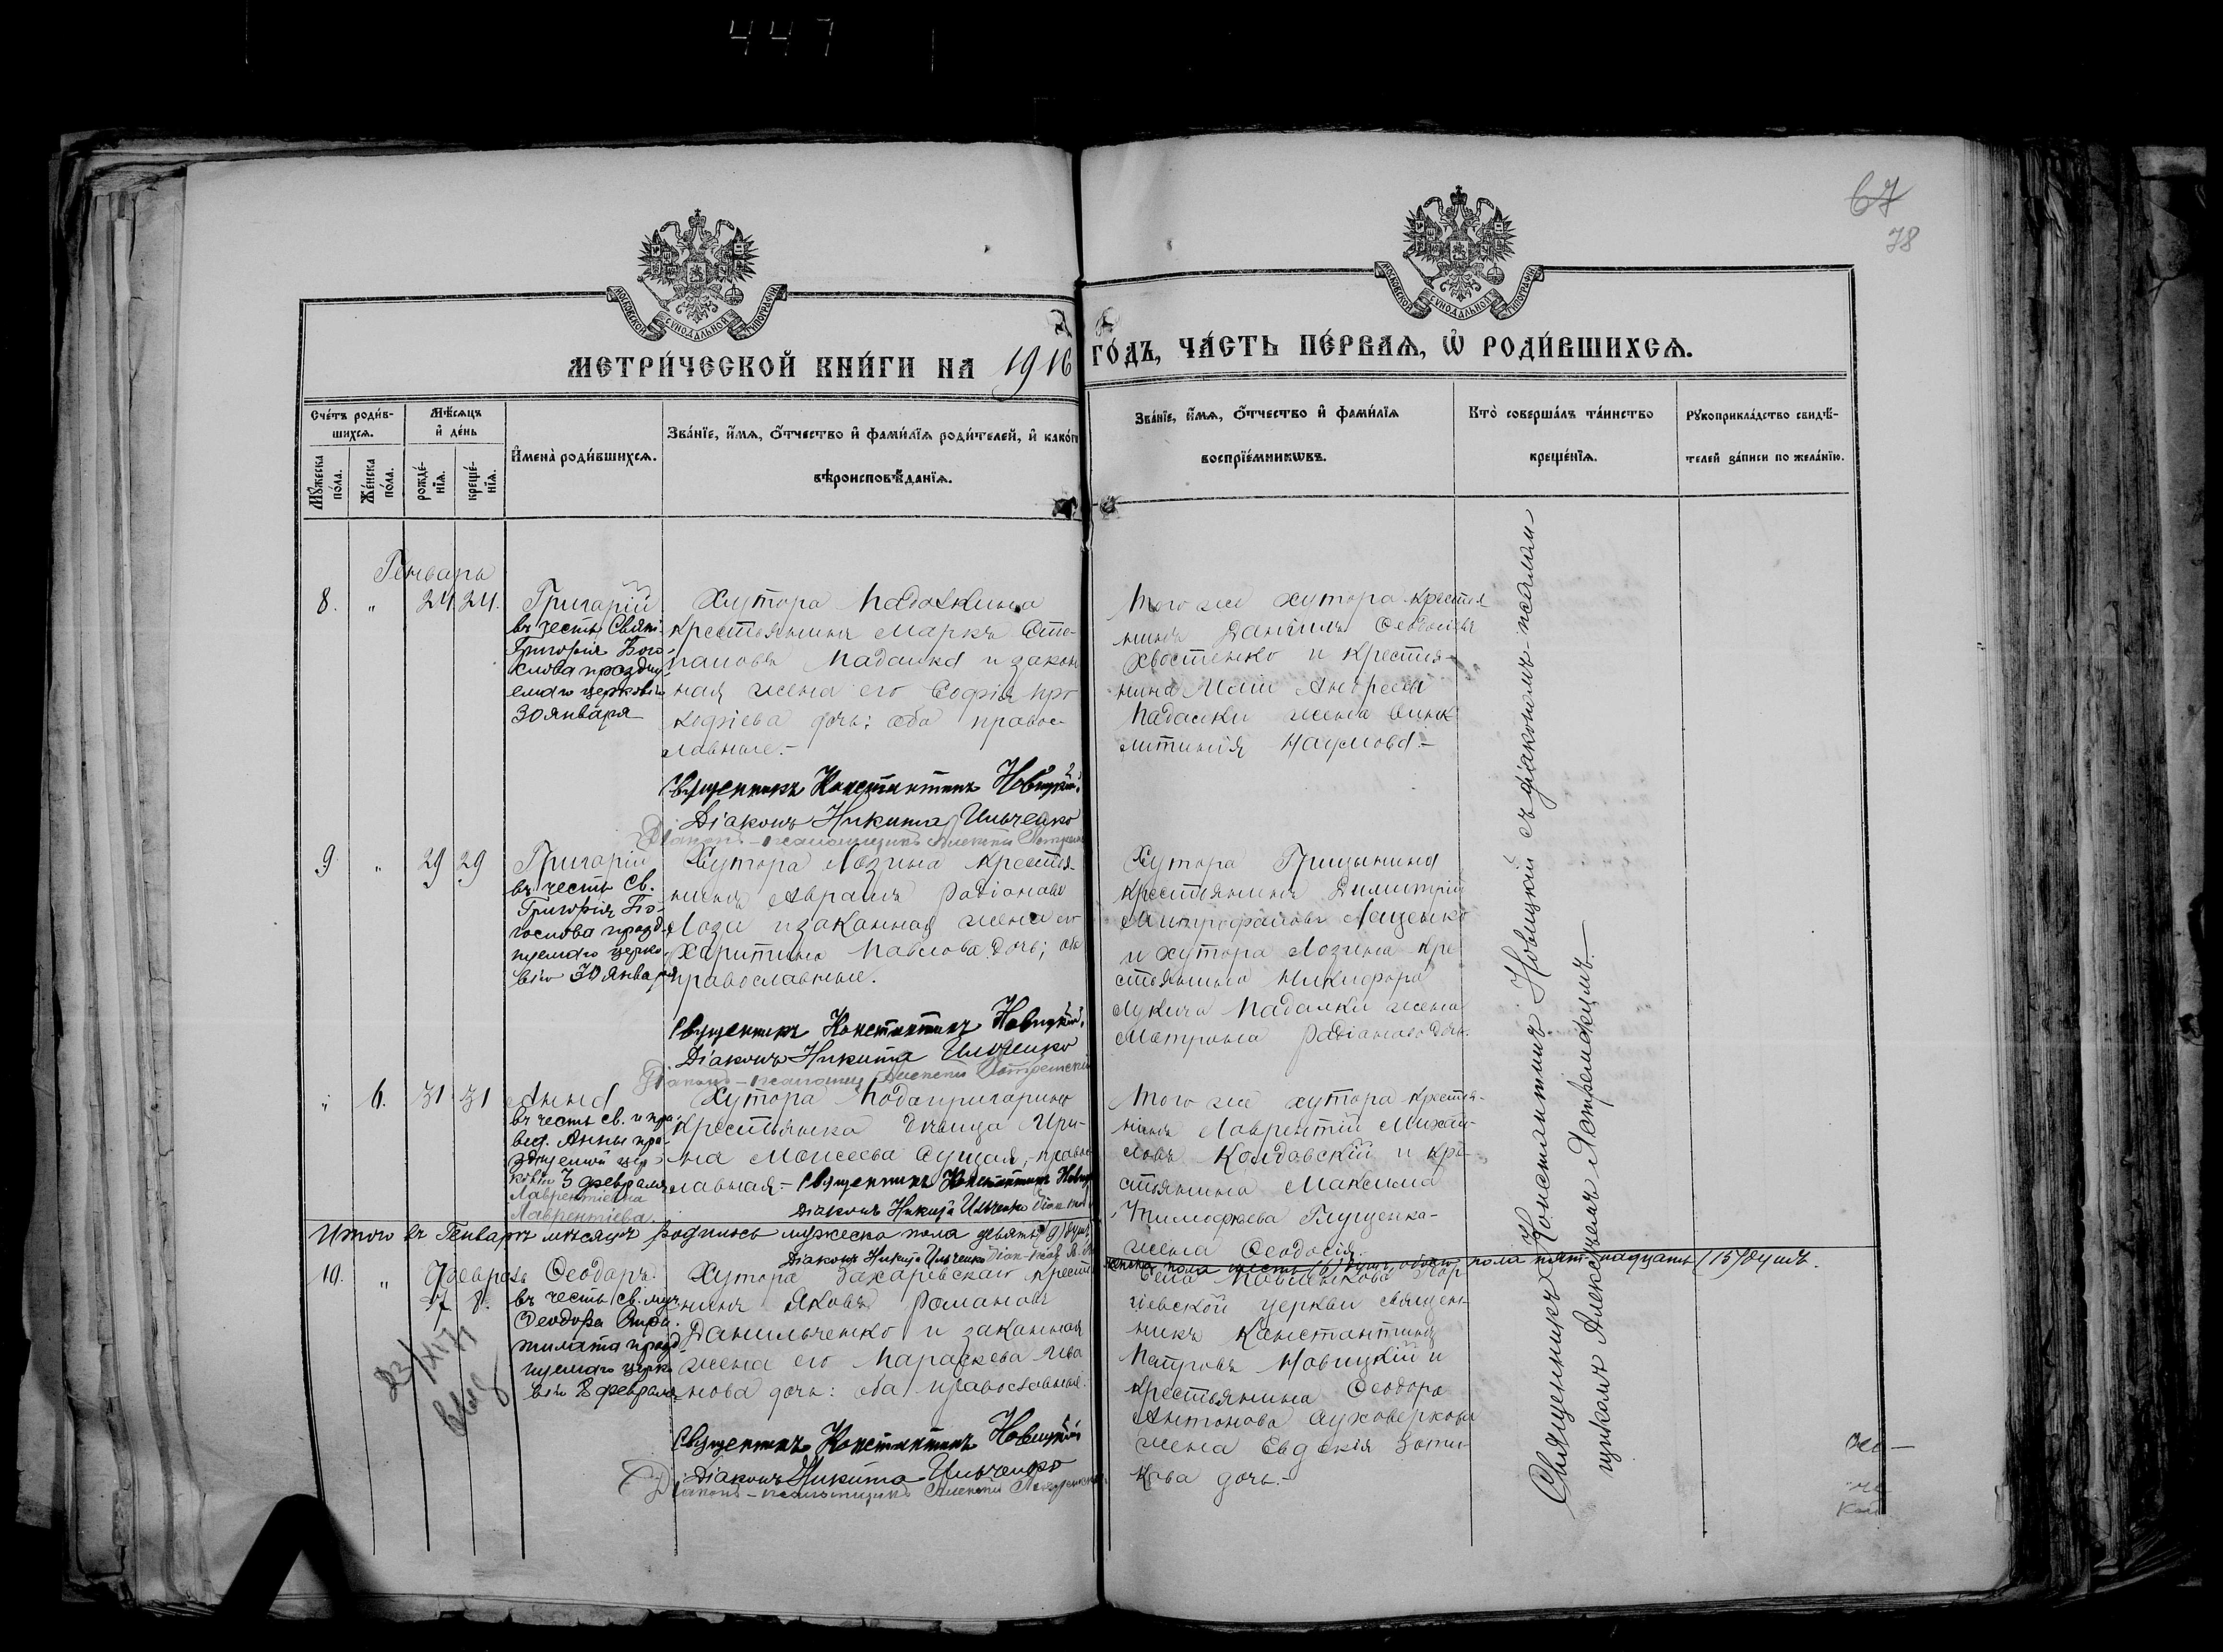 447
67
78
МОСКОВСКОЙ СѴНОДАЛЬНОЙ ТИПОГРАФІИ
МОСКОВСКОЙ СѴНОДАЛЬНОЙ ТИПОГРАФІИ
МЕТРИ́ЧЕСКОЙ КНИ́ГИ НА 1916 ГО́ДЪ, ЧА́СТЬ ПЕ́РВАѦ, Ѡ҆ РОДИ́ВШИХСѦ.
Сче́тъ роди́в-
шихсѧ.
Мꙋ́жеска по́ла.
Же́нска по́ла.
Мѣ́сѧцъ
и҆ де́нь
рожде́-
нїѧ.
креще́-
нїѧ.
И҆мена̀ роди́вшихсѧ.
Зва́нїе, и҆́мѧ, ѻ҆́тчество и҆ фами́лїѧ роди́телей, и҆ како́гѡ
вѣроисповѣ́данїѧ.
Зва́нїе, и҆́мѧ, ѻ҆́тчество и҆ фами́лїѧ
воспрїе́мникѡвъ.
Кто̀ соверша́лъ та́инство
креще́нїѧ.
Рꙋкоприкла́дство свидѣ́-
телей за́писи по жела́нїю.
Генварь
8. " 24 24. Григорій
въ честь Святи-
Григорія Бого-
слова праздну-
емаго церковію
30 января
Хутора Падалкина
крестьянинъ Маркъ Сте-
пановъ Падалка и закон
ная жена его Софія Про
кофіева дочь: оба правос-
лавные.-
Священникъ Константинъ Новицкій
Діаконъ Никита Ильченко
Діаконъ-псаломщикъ Алексій
Того же хутора крестья
нинъ Даніилъ Ѳеодосіевъ
Хвостенко и крестья-
нина Андреева
Падалки жена
Наумова.-
9. " 29 29 Григорій
въ честь Св.
Григорія Бо-
гослова празд-
нуемаго церко-
вію 30 января
Хутора Лозина крестья-
нинъ Авраамъ Радіоновъ
Лоза и законная жена его
Харитина Павлова дочь; оба
православные.
Священникъ Константинъ Новицкій
Діаконъ Никита Ильченко
Діаконъ-псаломщ Алексій
Хутора Грицынина
крестьянинъ Димитрій
Митрофановъ Лещенко
и хутора Лозина кре
стьянина Никифора
Лукича Падалки жена
Матрона Радіонова дочь.
" 6. 31 31 Анна
въ честь св. и пра-
вед. Анны пра-
зднуемой цер-
ковію 3 февраля
Лаврентіевна
Лаврентіева.
Хутора Подопригорина
крестьянка девица Ири-
на Моисеева Сущая, правос
лавная.- Священникъ Константинъ Новиц
Діаконъ Никита Ильченко
Того же хутора крестья-
нинъ Лаврентій Михаи-
ловъ Колдовскій и кре-
стьянина Максима
Тимофеева Глущенка-
жена Ѳеодосія.
Итого въ Генваре месяце родилось мужеска пола девять (9) душъ,
женска пола шесть (6) душъ, обоего пола пятнадцать (15) душъ.
Діаконъ Никита Ильченко
10. " Февраль
7 8. Ѳеодоръ
въ честь св. муч
Ѳеодора Стра
тилата празд-
нуемаго церко
вію 8 февраля
Хутора Захаревскаго кресть
нинъ Яковъ Романовъ
Данильченко и законная
жена его Параскева Ива
нова дочь: оба православные.
Священникъ Константинъ Новицкій
Діаконъ Никита Ильченко
Діаконъ-псаломщикъ Алексій
Села
гіевской церкви священ-
никъ Константинъ
Петровъ Новицкій и
крестьянина Ѳеодора
Антонова Суховеркова
жена Евдокія
кова дочь.-
Священникъ Константинъ Новицкій съ діакономъ-псалом-
щикомъ Алексіемъ